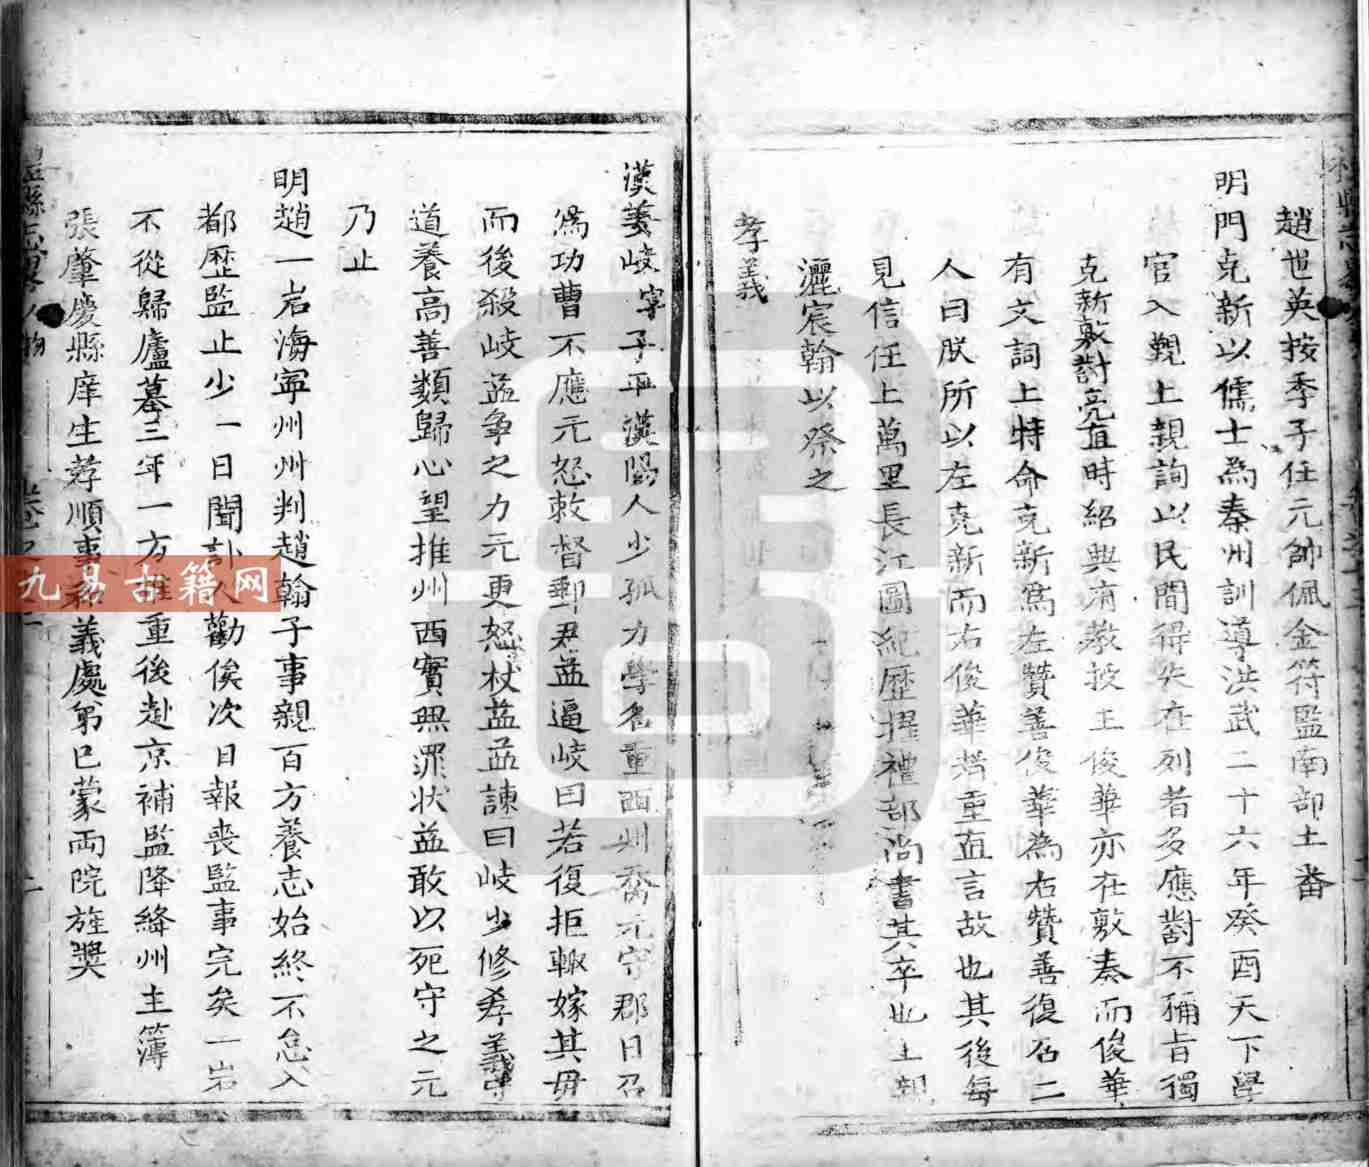 趙世英按季子任元帥佩金符監南部土番
明門克新以儒士為秦州訓導洪武二十六年癸酉天下學
官入覲上親詢以民間得失在列者多應對不稱旨獨
克新敷對亮直時紹興府教授王俊華亦在敷奏而俊華
有文詞上特命克新為左贊善俊華為右贊善復召二
人曰朕所以左克新而右俊華者重直言故也其後每
見信任上萬里長江圖紀歷擢禮部尚書其卒也上親
灑宸翰以祭之
孝義
漢姜岐字子平漢陽人少孤力學名重西州喬元守郡日召
為功曹不應元怒敕督郵尹益逼岐曰若復拒輙嫁其母
而後殺岐益爭之力元更怒杖益益諫曰岐少修孝義守
道養高善類歸心望推州西實無罪状益敢以死守之元
乃止
明趙一岩海寧州州判趙翰子事親百方養志始終不怠入
都歷監止少一日聞訃人勸俟次日報丧監事完矣一岩
不從歸廬墓三年一方推重後赴京補監降絳州主簿
張肇慶縣庠生孝順事親義處弟已蒙两院旌獎
禮縣志畧人物
卷之
九易古籍网